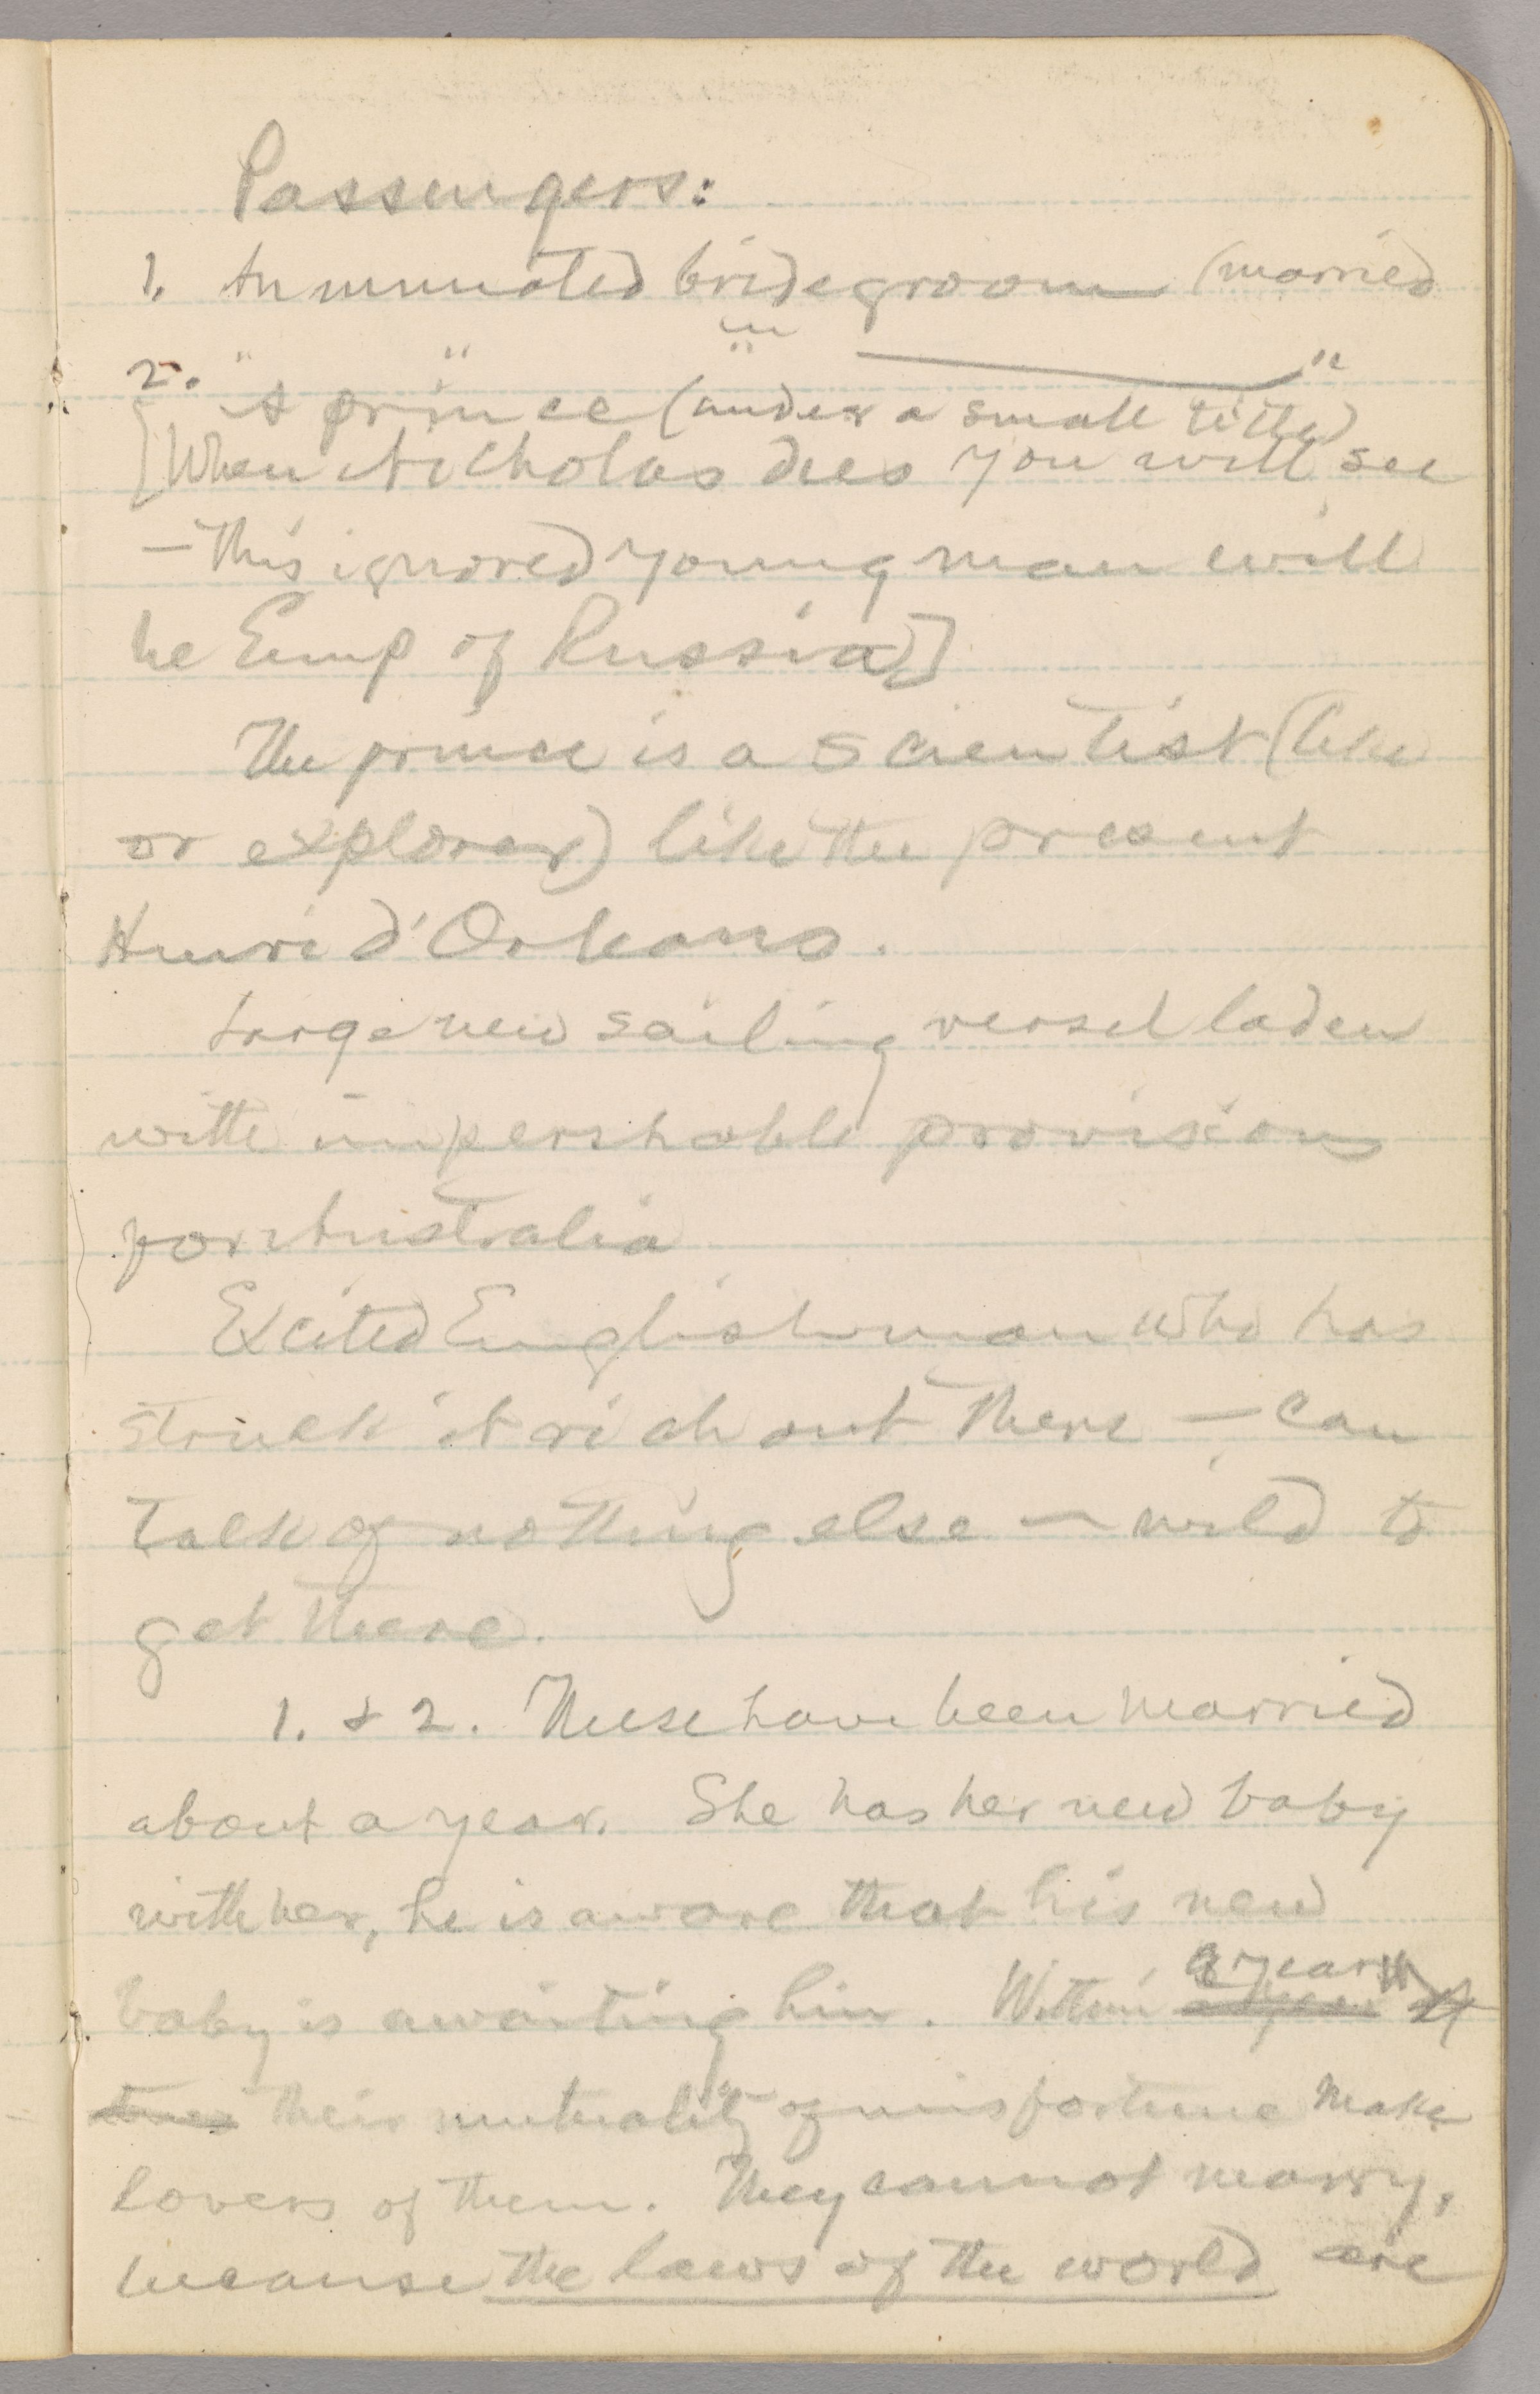 Passengers:
1. An unmated bridegroom (married
2. " " " "
A prince (under a small title)
[When Nicholas dies you will see
—this ignored young man will
be Emp of Russia]
The prince is a scientist (like
or explorer) like the present
Henri d'Orleans.
Large new sailing vessel laden
with imperishable provisions
for Australia
Excited Englishman who has
struck it rich out there — can
talk of nothing else — wild to
get there.
1. & 2. These have been married
about a year. She has her new baby
with her, he is aware that his new
baby is awaiting him. Within a year
their mutuality of misfortune make
lovers of them. They cannot marry,
because the laws of the world are